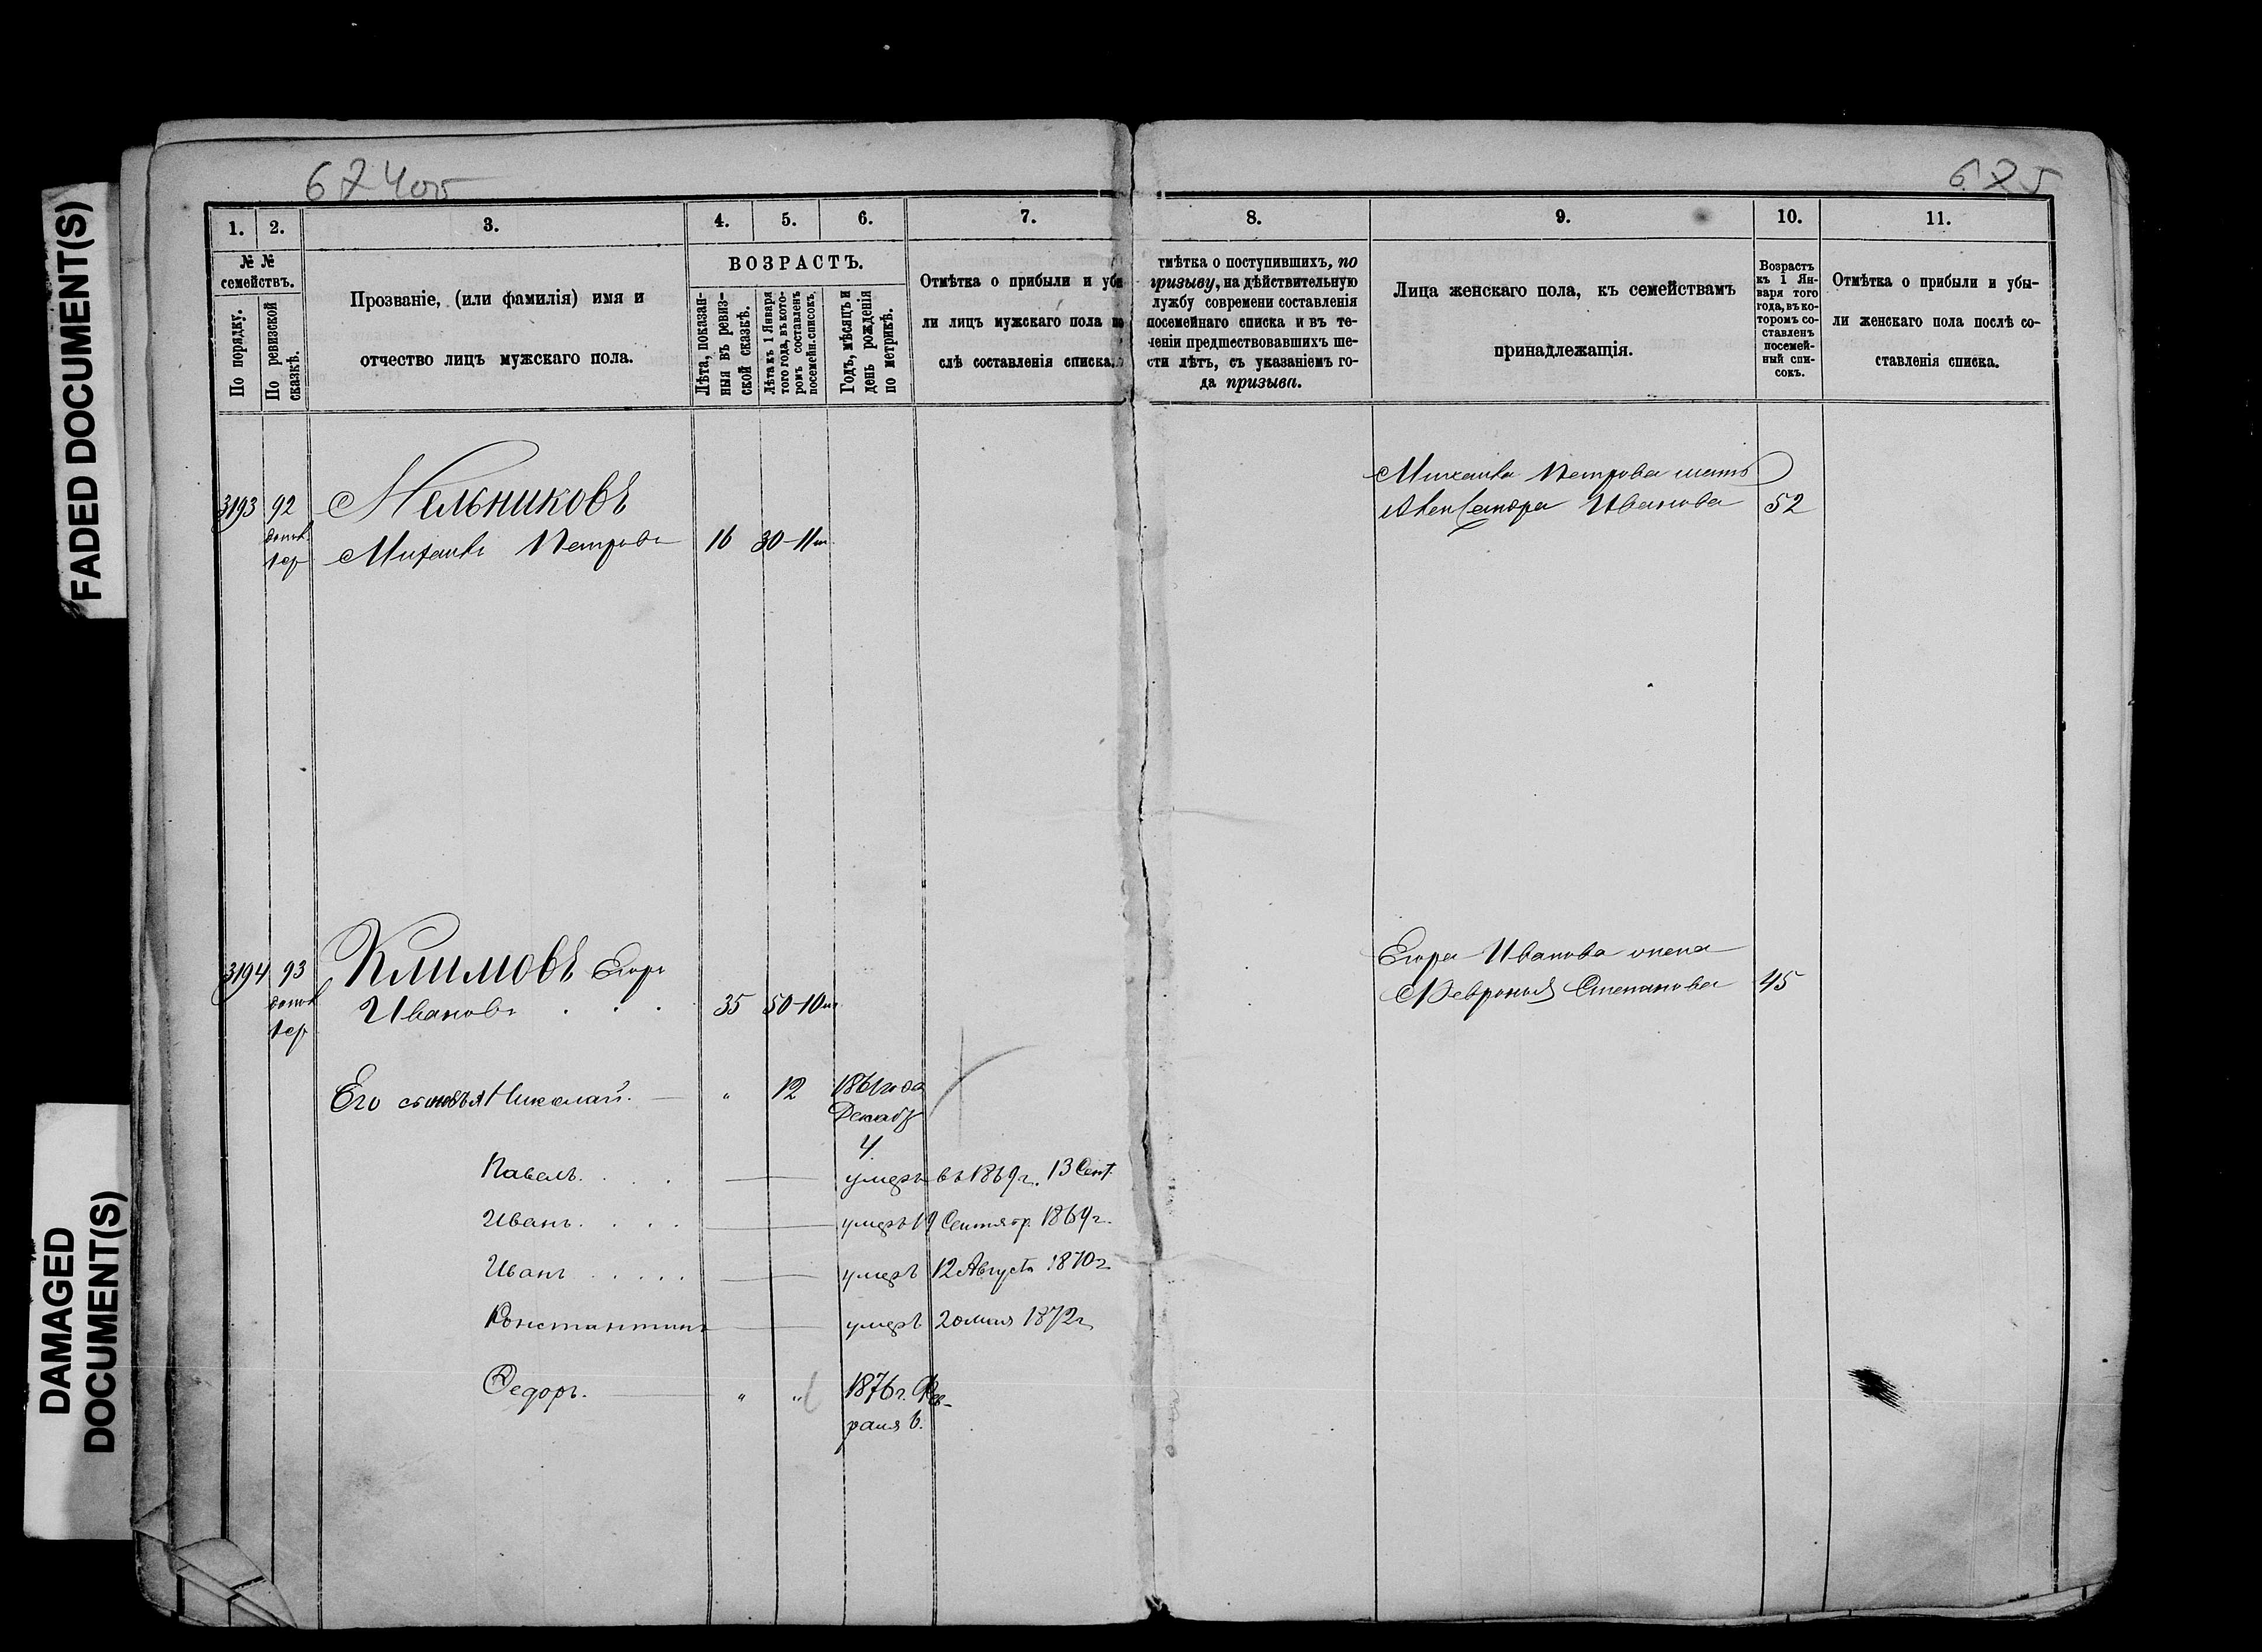 FADED DOCUMENT(S)
DAMAGED
DOCUMENT(S)
674об
675
1. 2. 3. 4. 5. 6. 7. 8. 9. 10. 11.
№ №
семействъ.
По порядку.
По ревизской
сказкѣ.
Прозваніе, (или фамилія) имя и
отчество лицъ мужскаго пола.
ВОЗРАСТЪ.
Лѣта, показан-
ныя въ ревиз-
ской сказкѣ.
Лѣта къ 1 Января
того года, въ кото-
ромъ составленъ
посемейн. списокъ.
Годъ, мѣсяцъ и
день рожденія
по метрикѣ.
Отмѣтка о прибыли и убы
ли лицъ мужскаго пола по
слѣ составленія списка.
тмѣтка о поступившихъ, по
призыву, на дѣйствительную
лужбу современи составленія
посемейнаго списка и въ те-
ченіи предшествовавшихъ ше-
сти лѣтъ, съ указаніемъ го-
да призыва.
Лица женскаго пола, къ семействамъ
принадлежащія.
Возрастъ
къ 1 Ян-
варя того
года, въ ко-
торомъ со-
ставленъ
посемей-
ный спи-
сокъ.
Отмѣтка о прибыли и убы-
ли женскаго пола послѣ со-
ставленія списка.
3193 92 Мельниковъ
Михаилъ Петровъ 16 30-11м
Михаила Петрова мать
Александра Иванова 52
3194 93 Климовъ Егоръ
Ивановъ . . . 35 50-10м
Егора Иванова жена
Февронья Степанова 45
Его сыновья Николай. — „ 12 1861 года
Декабр
4
Павелъ. . . . — умеръ въ 1869 г. 13 Сент.
Иванъ. . . . — умеръ 19 Сентябр. 1869 г.
Иванъ . . . . . — умеръ 12 Августа 1870 г
Константинъ — умеръ 20 мая 1872 г.
Федоръ. — „ „ 1876 г. Фев-
раля 6.